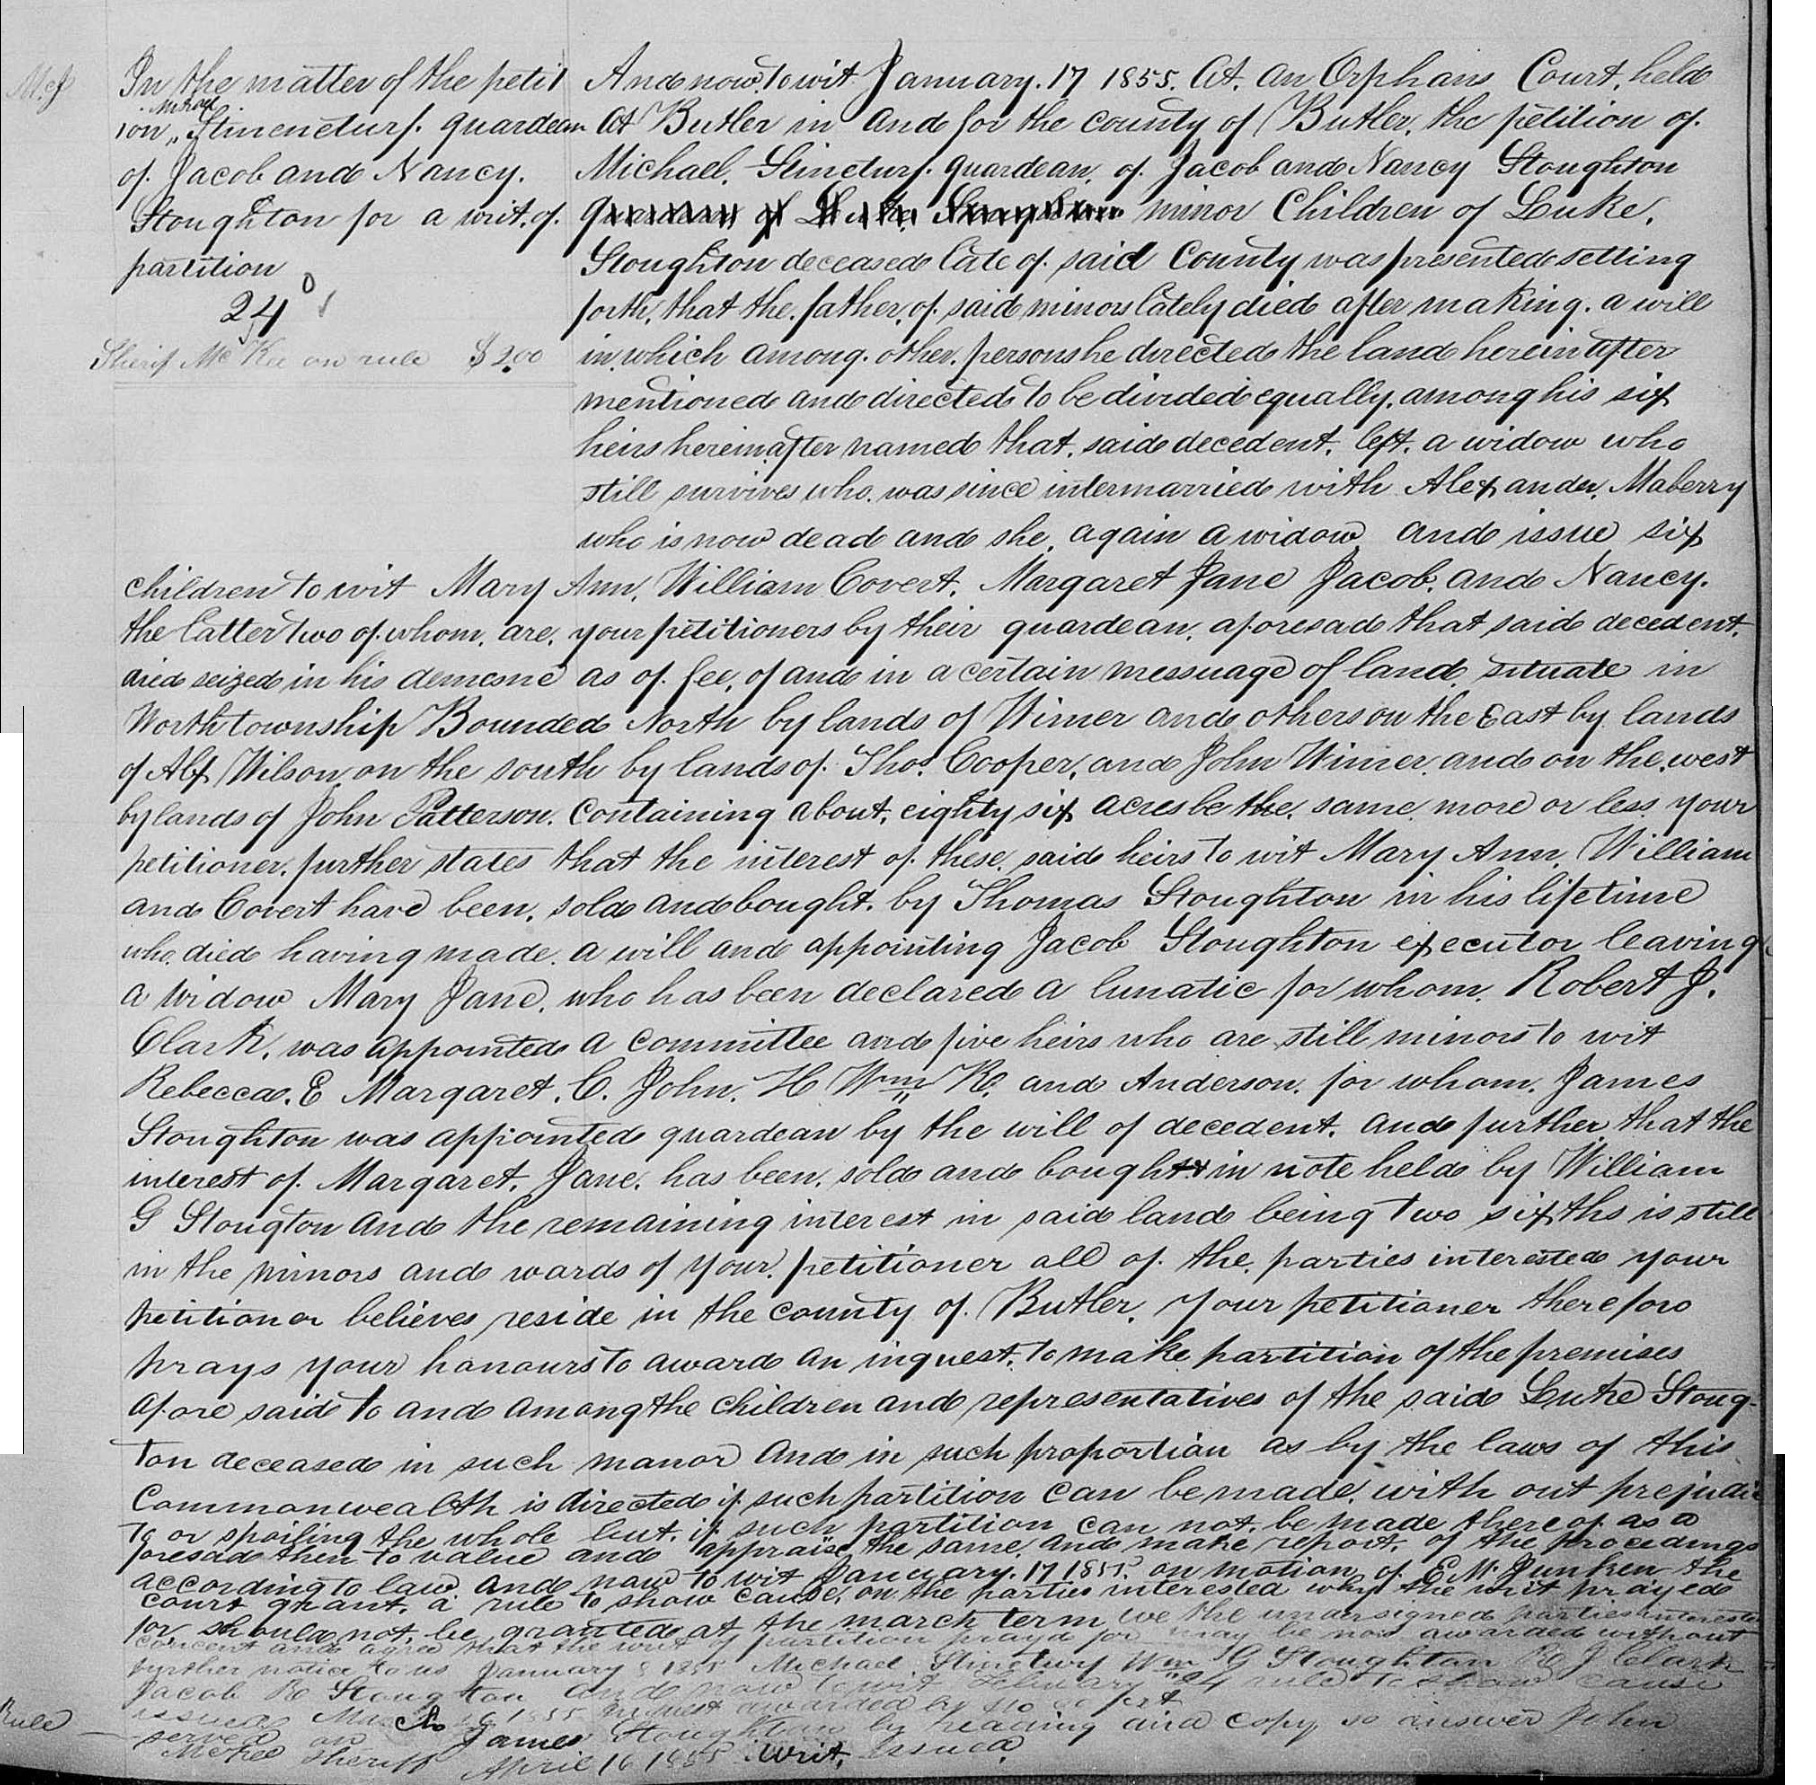 In the matter of the petit
Michael
ion " Stinencturf. guardean
of. Jacob and Nancy.
Stoughton for a writ. of.
partition
24
Sherif McKee on rule $ 2.00
And now, to wit January. 17 1855. At. an Orphans Court, held
at Butler in and for the county of Butler, the petition of.
Michael. Stincturf. guardean, of. Jacob and Nancy Stoughton
minor Children of Luke.
Stoughton deceased late of. said County was presented setting
forth, that the. father, of. said minors lately died after making. a will
in. which among. other. persons he directed the land herein after
mentioned and directed to be divided equally, among his six
heirs hereinafter named that. said decedent. left. a widow who
still survives who. was since intermarried with Alexander. Maberry
who is now dead and she. again a widow and issue six
children to wit Mary Ann, William Covert. Margaret Jane Jacob. and Nancy.
the latter two of. whom, are, your petitioners by their guardean. aforesad that said decedent.
died seized in his demesne as of. fee, of and in a certain messuage of land. situate in
Worth township Bounded North by lands of Wimer and others on the East by lands
of Alx Wilson on the south by lands of. Thos. Cooper, and John Wimer. and on the. west
by lands of John Patterson. Containing about. eighty six acres be the. same. more or less. your
petitioner. further states that the interest of. these. said heirs to wit Mary Ann, William
and Covert have been. sold and bought. by Thomas Stoughton in his lifetime
who died having made. a will and appointing Jacob Stoughton executor leaving
a widow Mary Jane. who has been declared a lunatic for whom. Robert J.
Clark, was appointed a committee and five heirs who are still minors to wit
Rebecca. E Margaret. C. John. H Wm R. and Anderson. for whom. James
Stoughton was appointed guardean by the will of decedent. and further that the
interest of. Margaret. Jane. has been. sold and bought in note held by William
G Stougton and the remaining interest in said land being two sixths is still
in the minors and wards of your. petitioner all of. the. parties interested your
petitioner believes reside in the county of. Butler. Your petitioner therefore
prays your honours to award an inquest. to make partition of the premises
afore said to and among the children and representatives of the said Luke Stoug-
ton deceased in such manor and in such proportion as by the laws of this
Commonwealth is directed if such partition can be made. with out prejudice
to or spoiling the whole but. if such partition can not. be made thereof. as a
foresad then to value and appraise the same. and make report. of the procedings
according to law and now to wit January. 17 1855. on motion of E Mc Junken the
court grant. a rule to show cause, on the parties interested why the writ prayed
for should not. be granted at the march term we the undersigned parties interested
concent and agree that the writ of partition prayd for may be now awarded without
further notice to us January 8 1855 Michael Stincturf Wm G Stoughton R J Clark
Jacob R Stougton and now to wit February 24 rule to show cause
issued 1855 inquest awarded by
served on James Stoughton by reading and copy so answer John
McKee Sheriff April 16 1855 writ. Issued
Rule